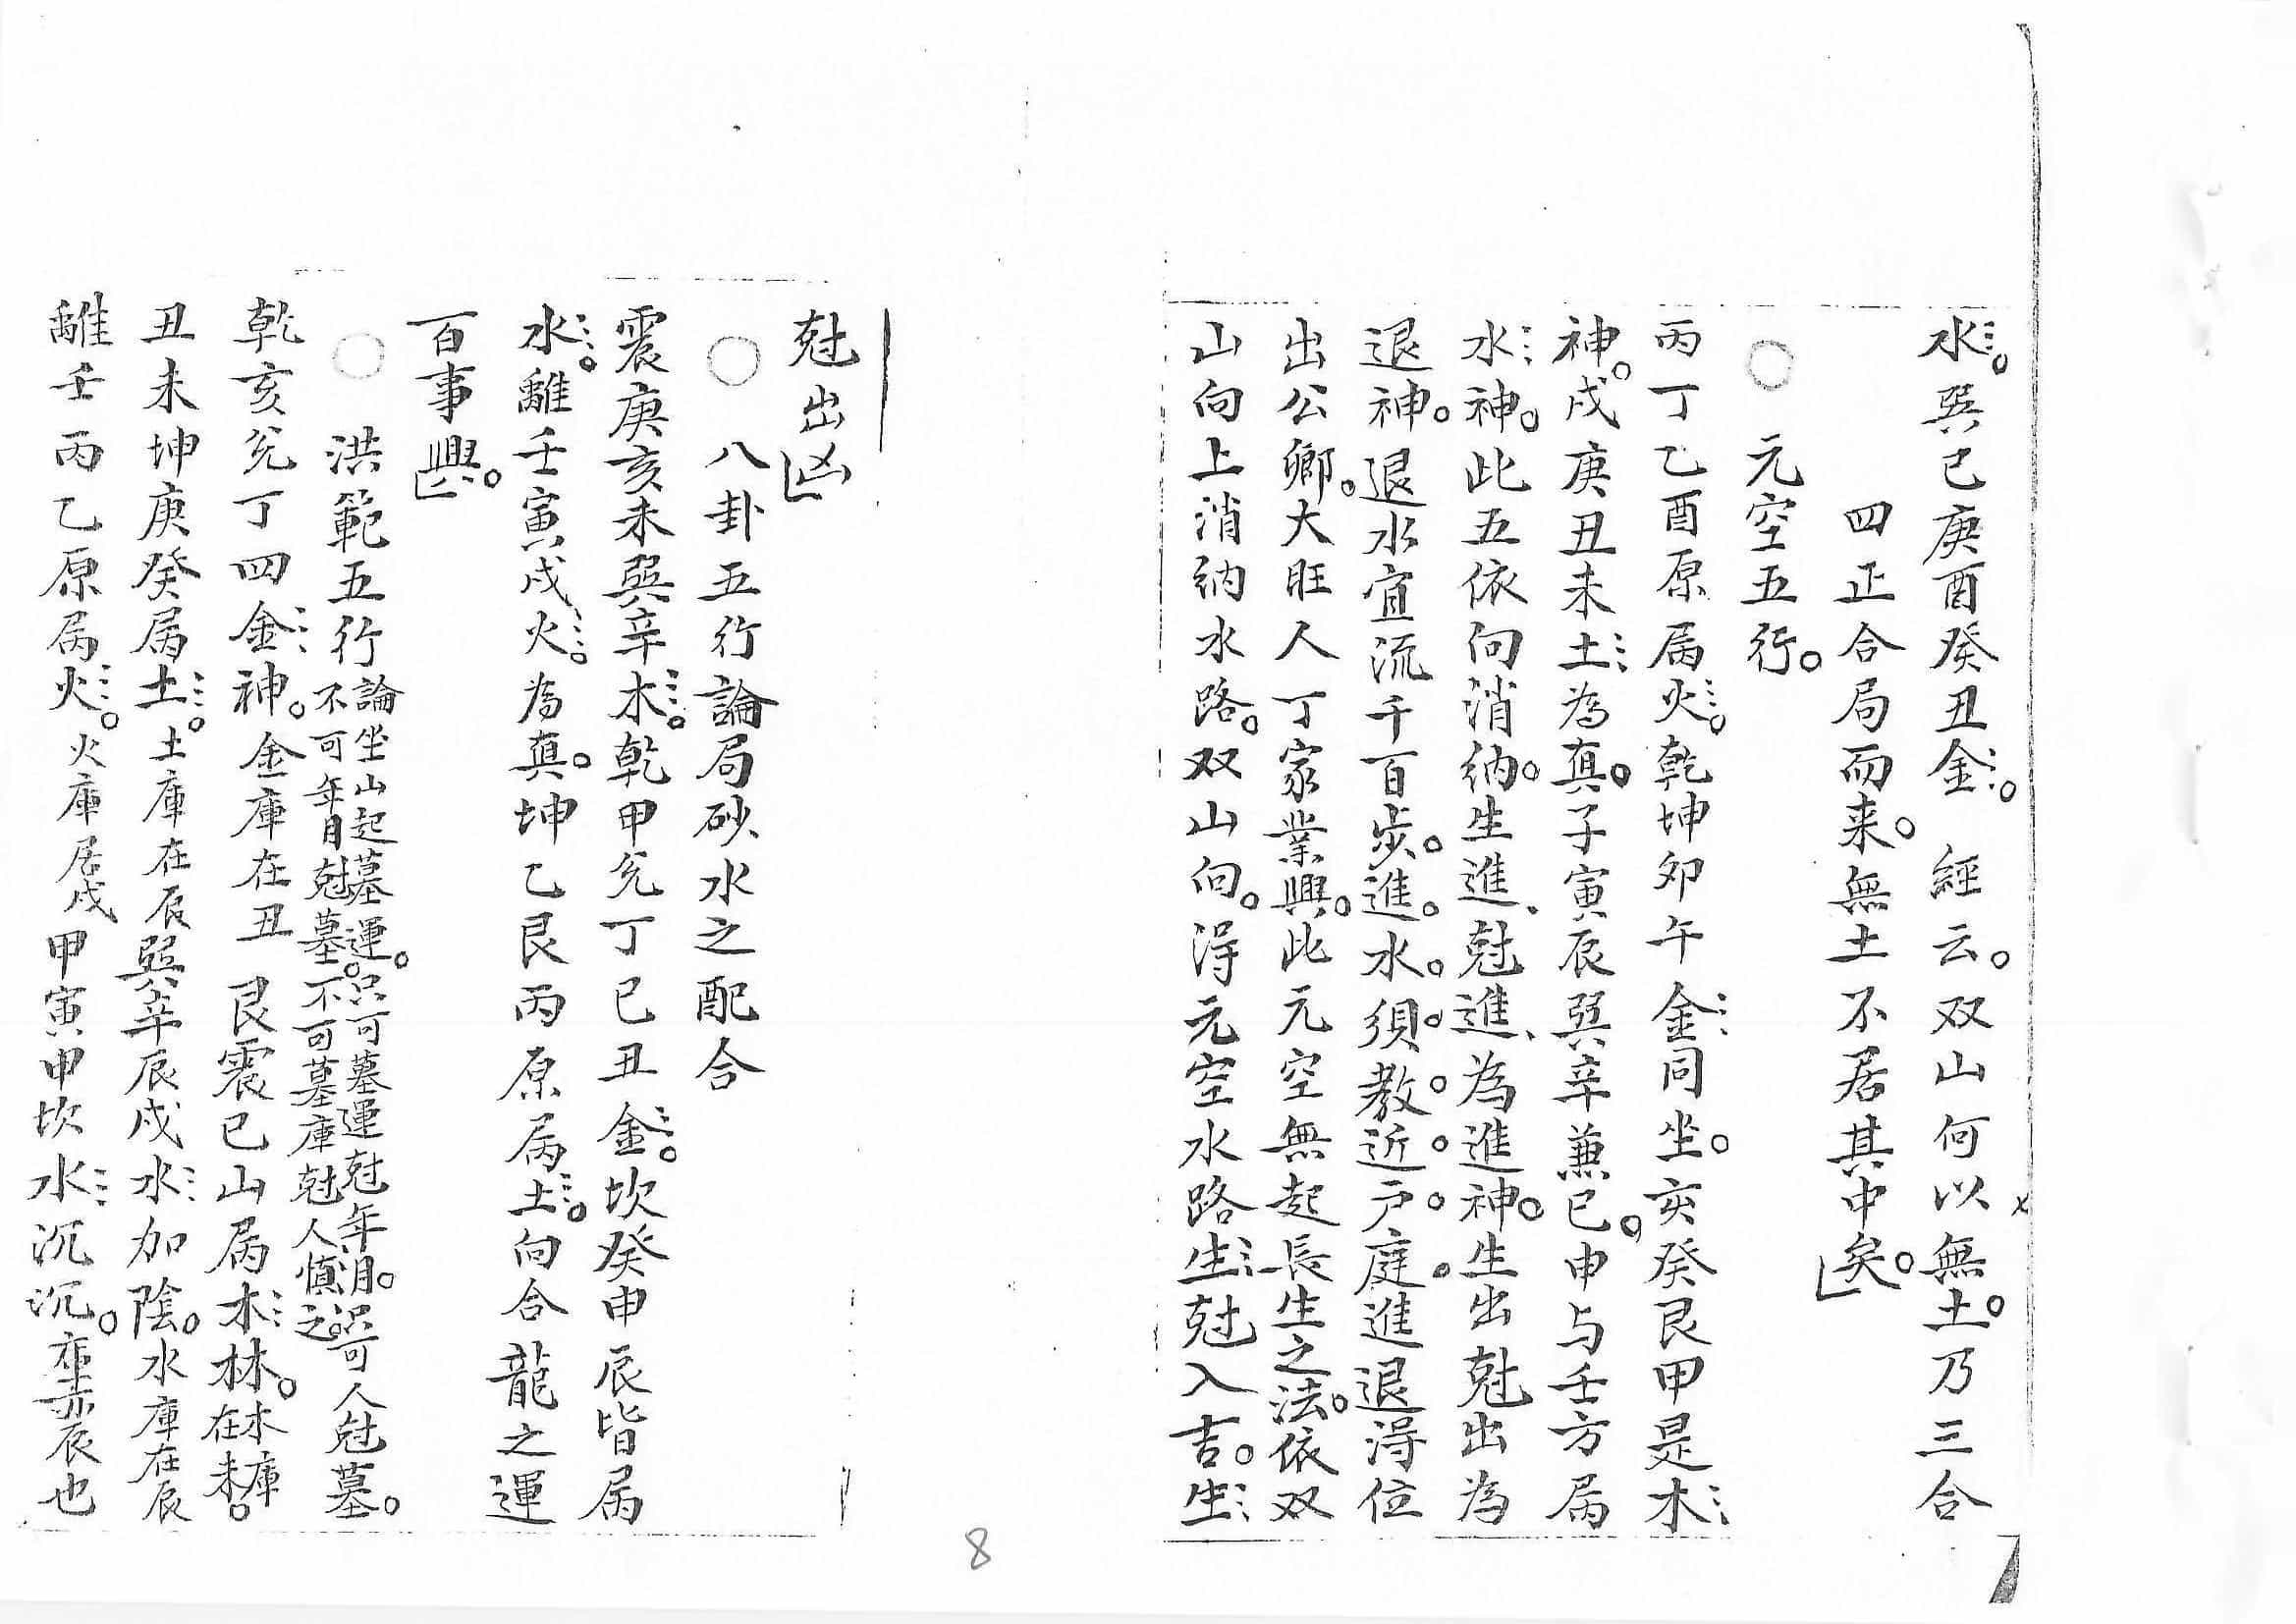 水。巽巳庚酉癸丑金。經云。双山何以無土。乃三合
四正合局而来。無土不居其中矣。
○元空五行。
丙丁乙酉原属火。乾坤卯午金同坐。亥癸艮甲是木
神。戌庚丑未土為真。子寅辰巽辛兼巳。申与壬方属
水神。此五依向消納。生進、尅進、為進神。生出尅出為
退神。退水宜流千百步。進。水。須。教。近。户。庭。進退淂位
出公卿。大旺人丁家業興。此元空無起長生之法。依双
山向上消納水路。双山向。淂元空水路生尅入吉。生
尅出凶
○八卦五行論局砂水之配合
震庚亥未巽辛木。乾甲兌丁巳丑金。坎癸申辰皆属
水。離壬寅戌火。為真。坤乙艮丙原属土。向合龍之運
百事興。
○洪範五行
論坐山起墓運。只可墓運尅年月。只可人尅墓。
不可年月尅墓。不可墓庫尅人慎之。
乾亥兌丁四金神。金庫在丑艮震巳山属木林。木庫在未。
丑未坤庚癸属土。土庫在辰巽辛辰戌水加陰。水庫在辰
離壬丙乙原属火。火庫居戌甲寅申坎水沉沉。庫辰也
8